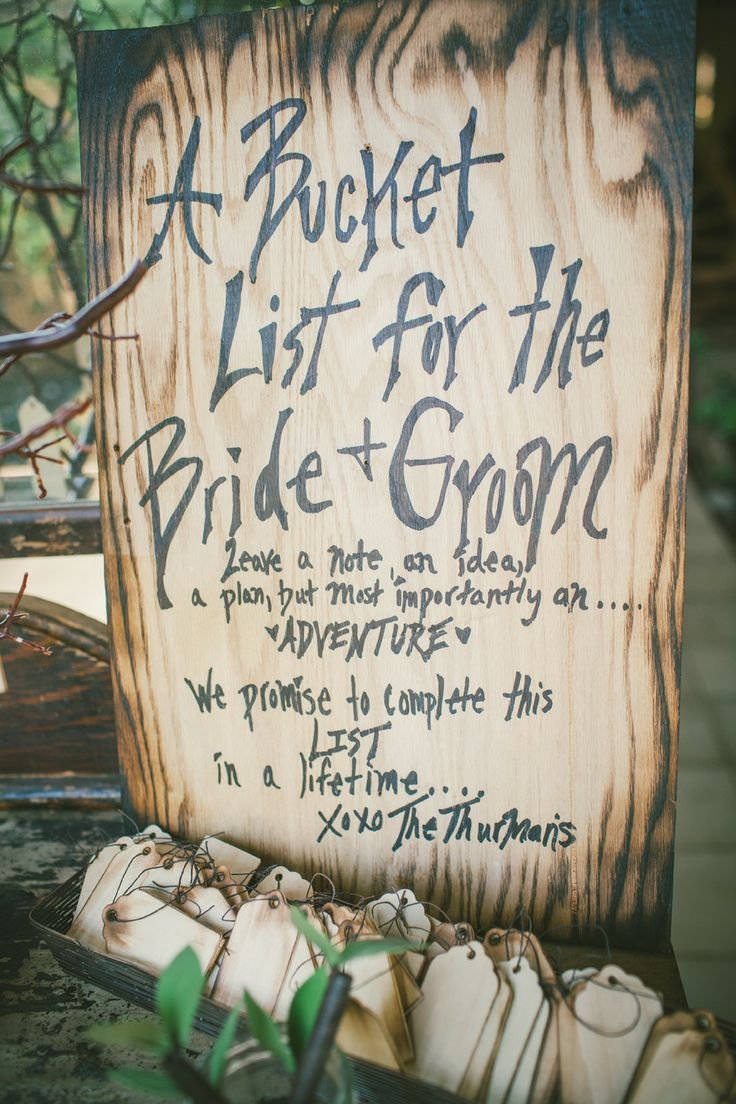 A Bucket
List for the
Bride + Groom
Leave a note, an idea,
a plan, but most importantly an....
♥ADVENTURE♥
We promise to complete this
LIST
in a lifetime....
xoxo The Thurman's